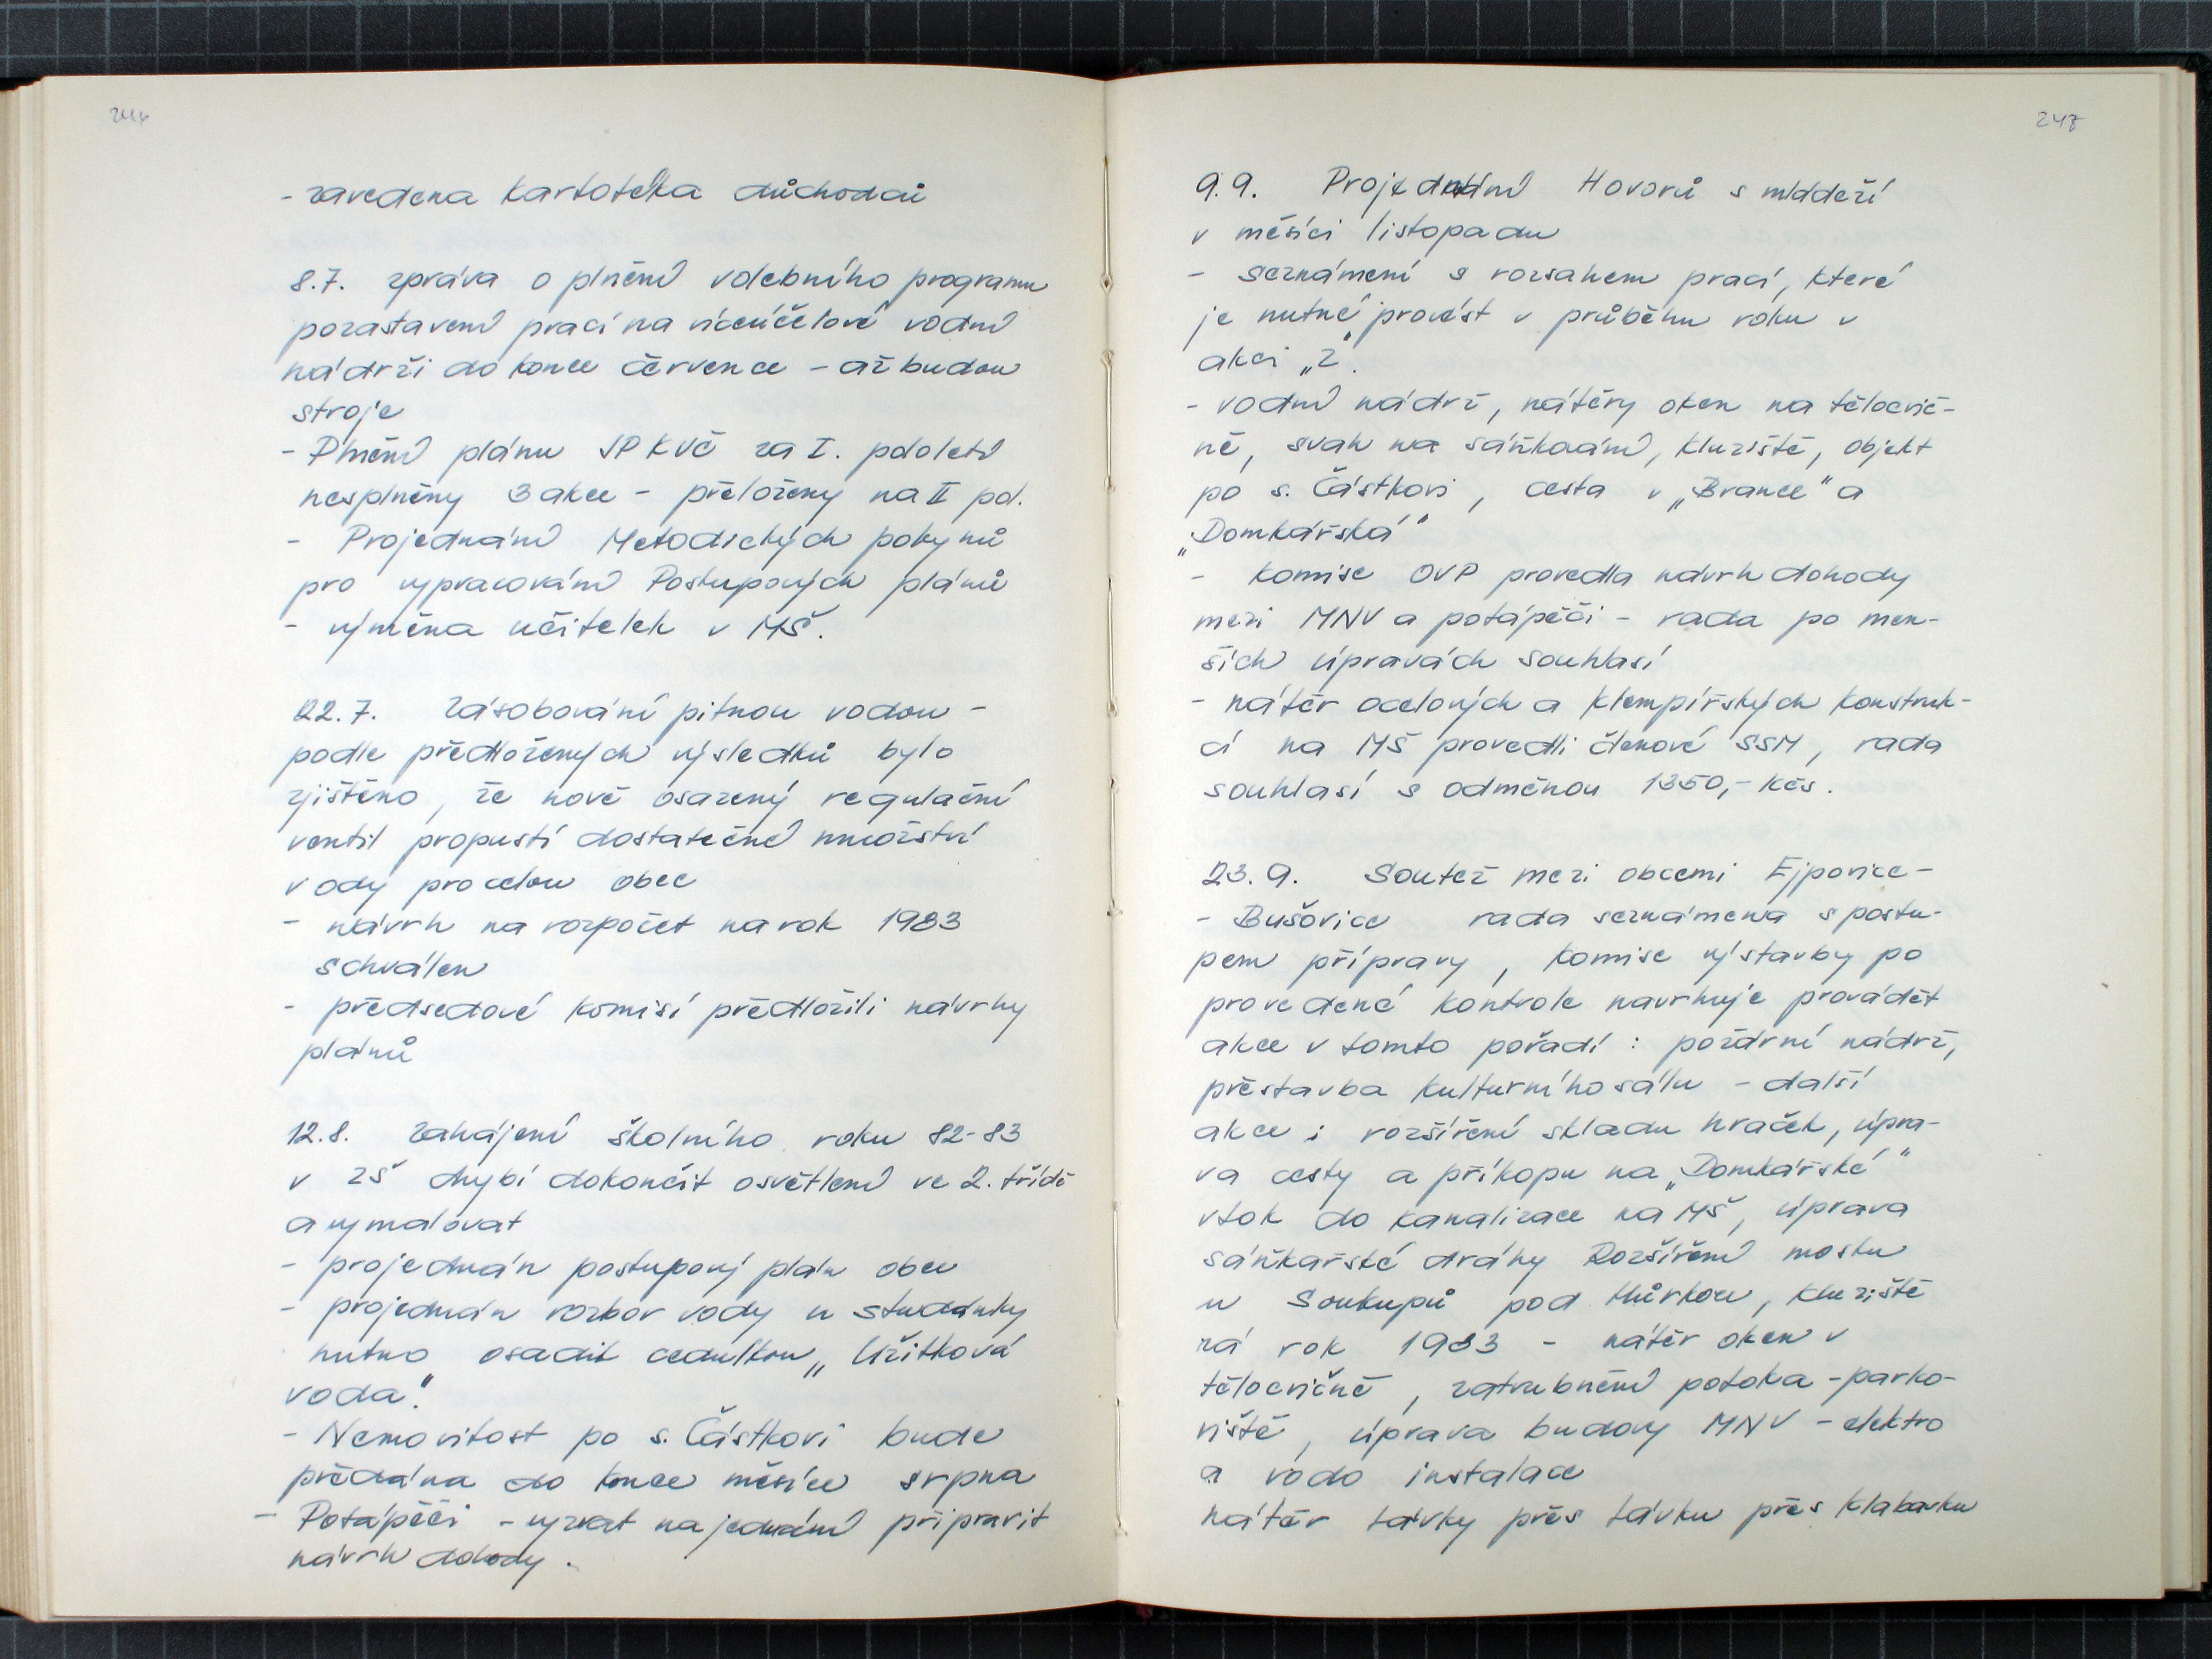 - zavedena kartotéka důchodců
8.7. zpráva o plnění volebního programu
pozastavení prací na víceúčelové vodní
nádrži do konce července - až budou
stroje
- Plnění plánu JPKVČ za I. pololetí
nesplněny 3 akce - přeloženy na II pol.
- Projednání Metodických pokynů
pro vypracování Postupových plánů
- výměna učitelek v MŠ.
22.7. Zásobování pitnou vodou -
podle předložených výsledků bylo
zjištěno, že nově osazený regulační
ventil propustí dostatečné množství
vody pro celou obec
- návrh na rozpočet na rok 1983
schválen
- předsedové komisí předložili návrhy
plánů
12.8. Zahájení školního roku 82-83
v ZŠ chybí dokončit osvětlení ve 2. třídě
a vymalovat
- projednán postupový plán obce
- projednán rozbor vody u studánky
nutno osadit cedulkou „Užitková
voda."
- Nemovitost po s. Částkovi bude
předána do konce měsíce srpna
- Potápěči - vyzvat na jednání připravit
návrh dohody.
247
9.9. Projednání Hovorů s mládeží
v měsíci listopadu
- seznámení s rozsahem prací, které
je nutné provést v průběhu roku v
akci „Z".
- vodní nádrž, nátěry oken na tělocvič-
ně, svah na sáňkování, kluziště, objekt
po s. Částkovi, cesta v „Brance" a
„Domkářská"
- komise OVP provedla návrh dohody
mezi MNV a potápěči - rada po men-
ších úpravách souhlasí
- nátěr ocelových a klempířských konstruk-
cí na MŠ provedli členové SSM, rada
souhlasí s odměnou 1350,- Kčs.
23.9. Soutěž mezi obcemi Ejpovice -
- Bušovice rada seznámena s postu-
pem přípravy, komise výstavby po
provedené kontrole navrhuje provádět
akce v tomto pořadí: požární nádrž,
přestavba kulturního sálu - další
akce: rozšíření skladu hraček, úpra-
va cesty a příkopu na „Domkářské"
vtok do kanalizace na MŠ, úprava
sáňkařské dráhy Rozšíření mostu
u Soukupů pod Hůrkou, kluziště
zá rok 1983 - nátěr oken v
tělocvičně, zatrubnění potoka - parko-
viště, úprava budovy MNV - elektro
a vodo instalace
nátěr lávky přes lávku přes Klabavku